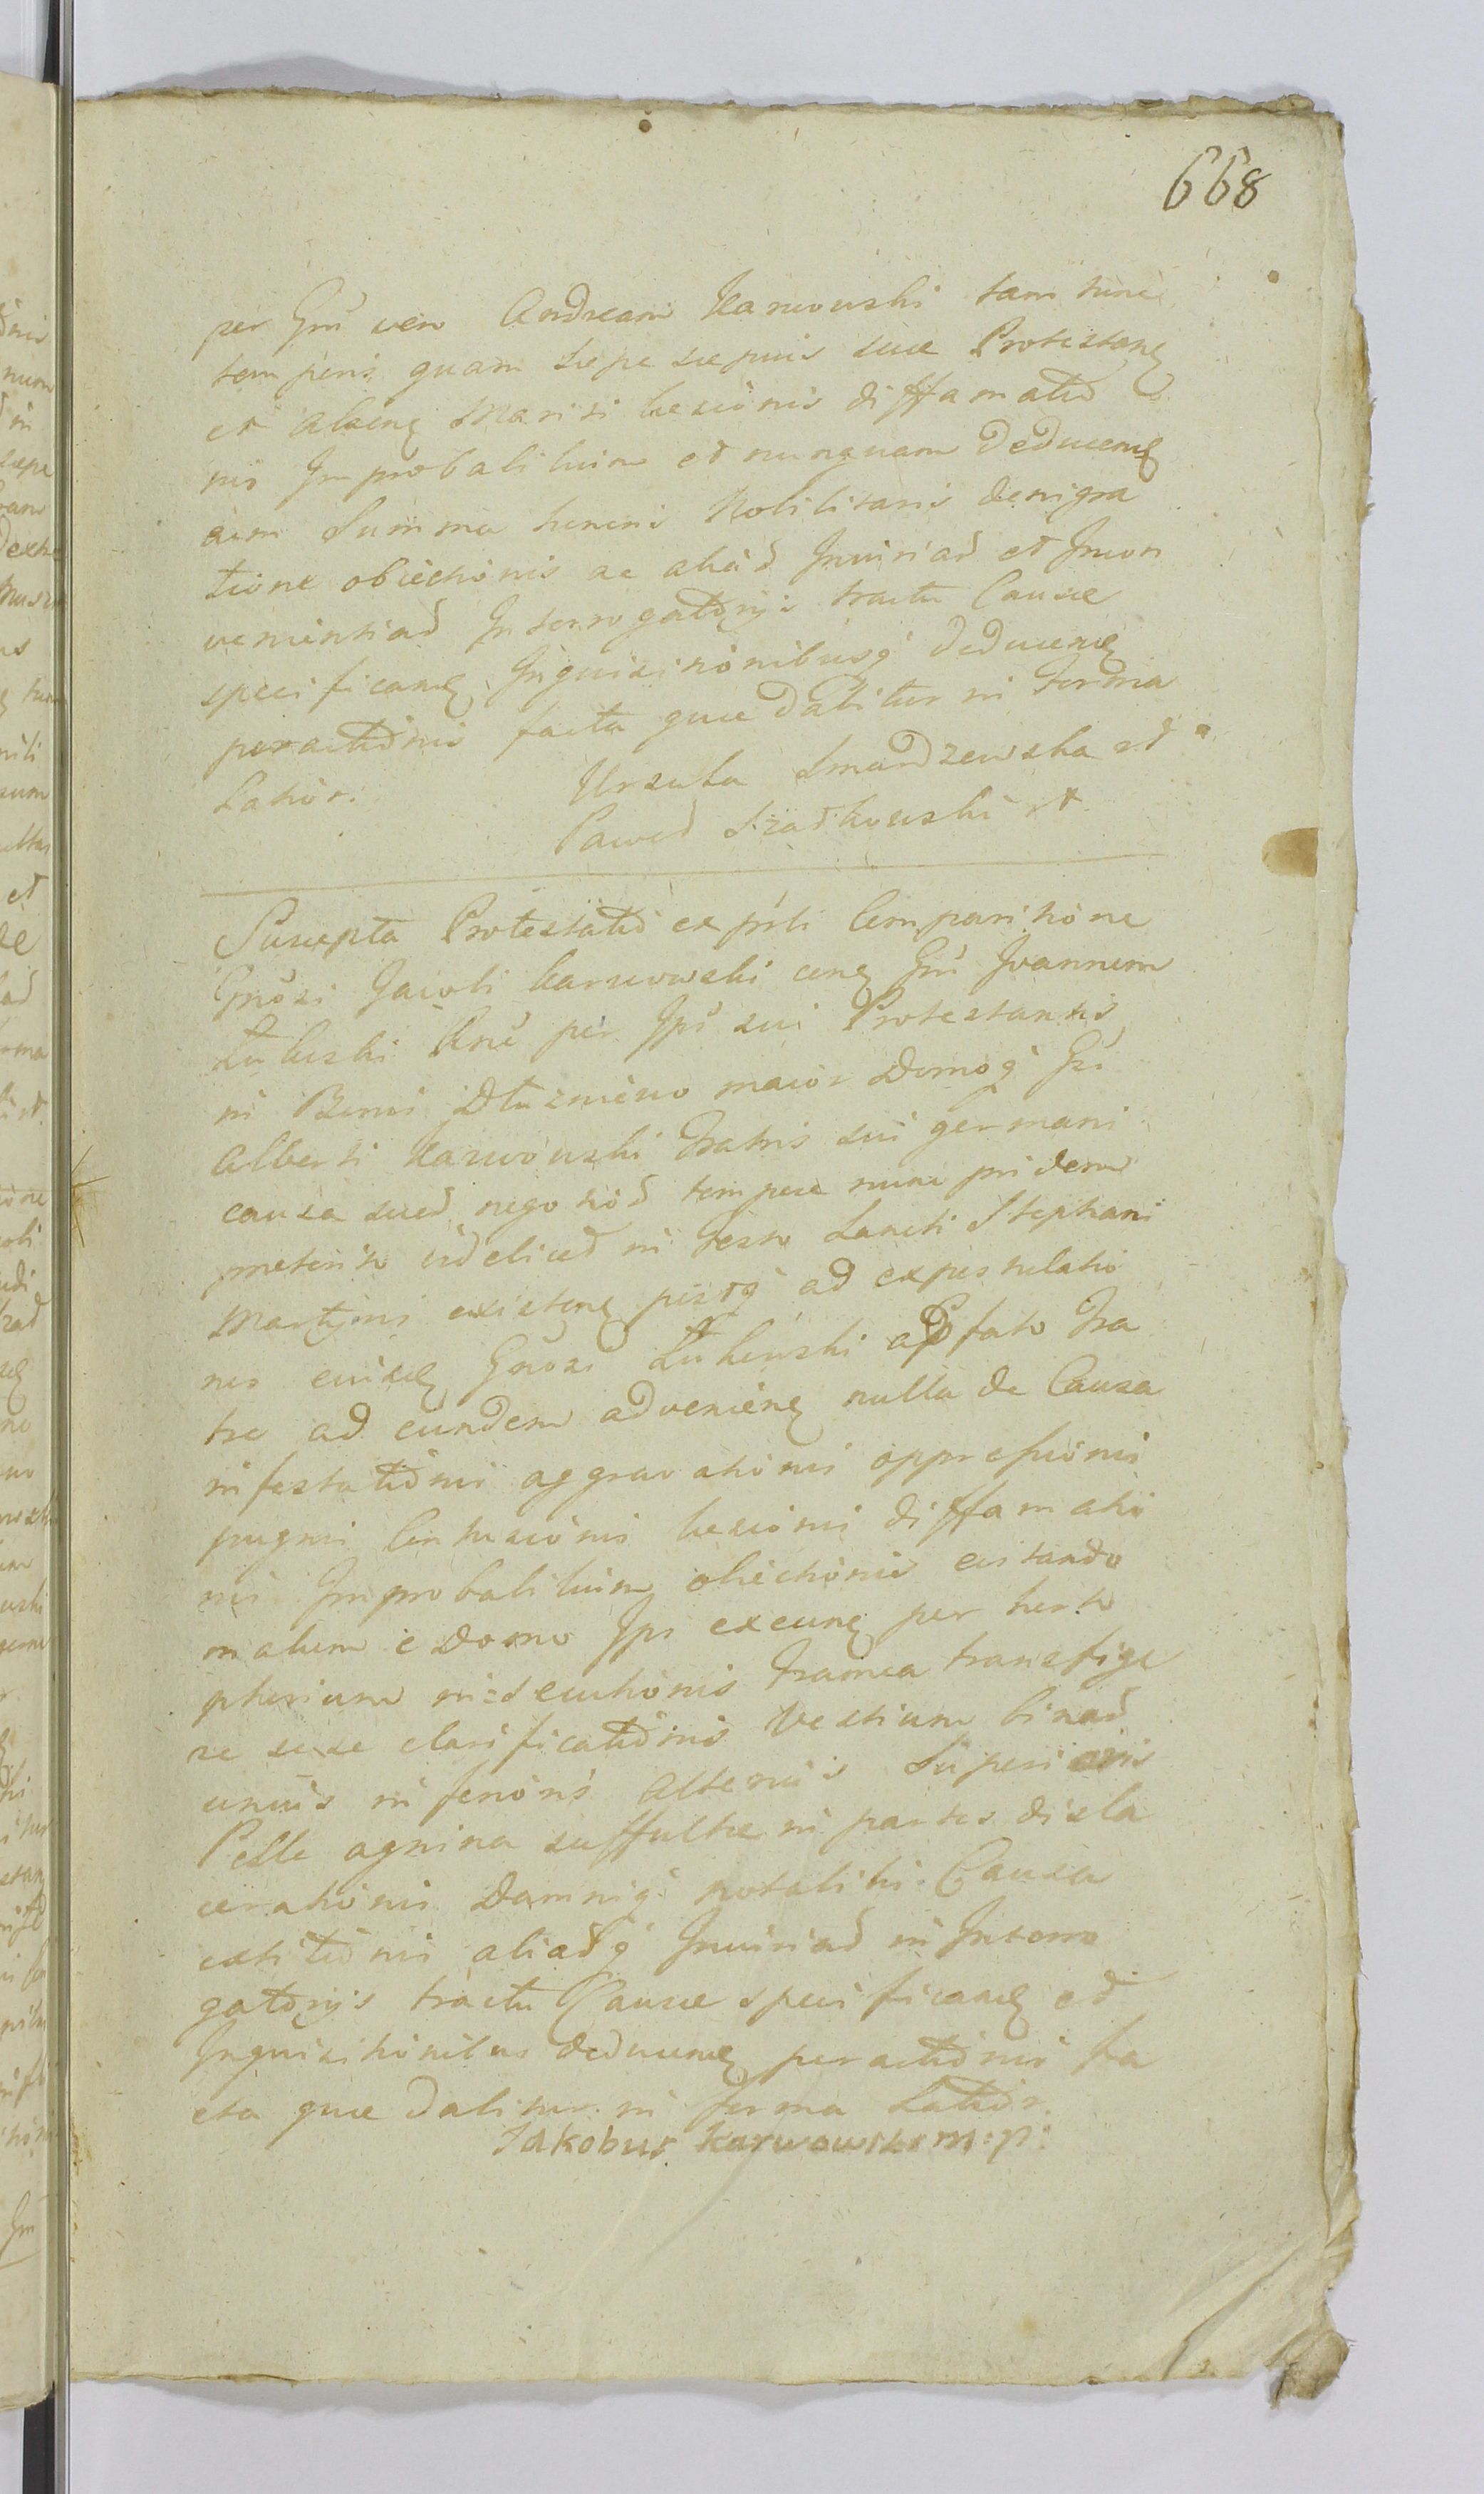 668
per Gm̃ vero Andream Karwowski tam tunc
temporis quam sæpe sæpius suæ Protestanꝭ
et absenꝭ Mariti læsionis diffamatio
nis Improbalitium et nunquam deducenꝭ
cum Summa honoris Nobilitaris denigra
tione obiectionis ac aliaȓ Iniuriaȓ et Incon
venientiaȓ Interrogatorijs tractu Causæ
specificanꝭ Inquisitionibusq̃ deducenꝭ
peractionis facta quæ dabitur in forma
Latior.
Urszula Smardzewska et
Paweł Szadkowski
Suscepta Protestatio ex prñti Comparitione
Gñosi Jacobi Karwowski conꝭ Gm̃ Joannem
per Ipm̃ sui Protestantis
in Bonis Dłuzniewo maior Domoq̃ Gsi
Alberti Karwowski Fratris sui germani
causa suaȓ negotioȓ tempore nunc pridem
præterito videlicet in Festo Sancti Stephani
Martyris existenꝭ postq̃ ad expostulatio
nes eiusdꝭ Gñosi a Præfato Fra
tre ad eundem advenienꝭ nulla de Causa
infestationis aggravationis oppressionis
pugnis Contusionis læsionis diffamatio
nis Improbalitium obiectionis evitando
malum e domo Ipsi exeunꝭ per
insecutionis Framea transfige
re sese clarificationis Vestium binaȓ
unius inferioris alterius Superioris
Pelle agnina suffultæ in partes disla
cerationis Damniq̃ notabilis Causa
extitionis aliaȓq̃ Iniuriaȓ in Interro
gatorijs tractu Causæ specificanꝭ et
Inquisitionibus deducenꝭ peractionis fa
cta quæ dabitur in forma Latior.
Jakobus Karwowski m:p: